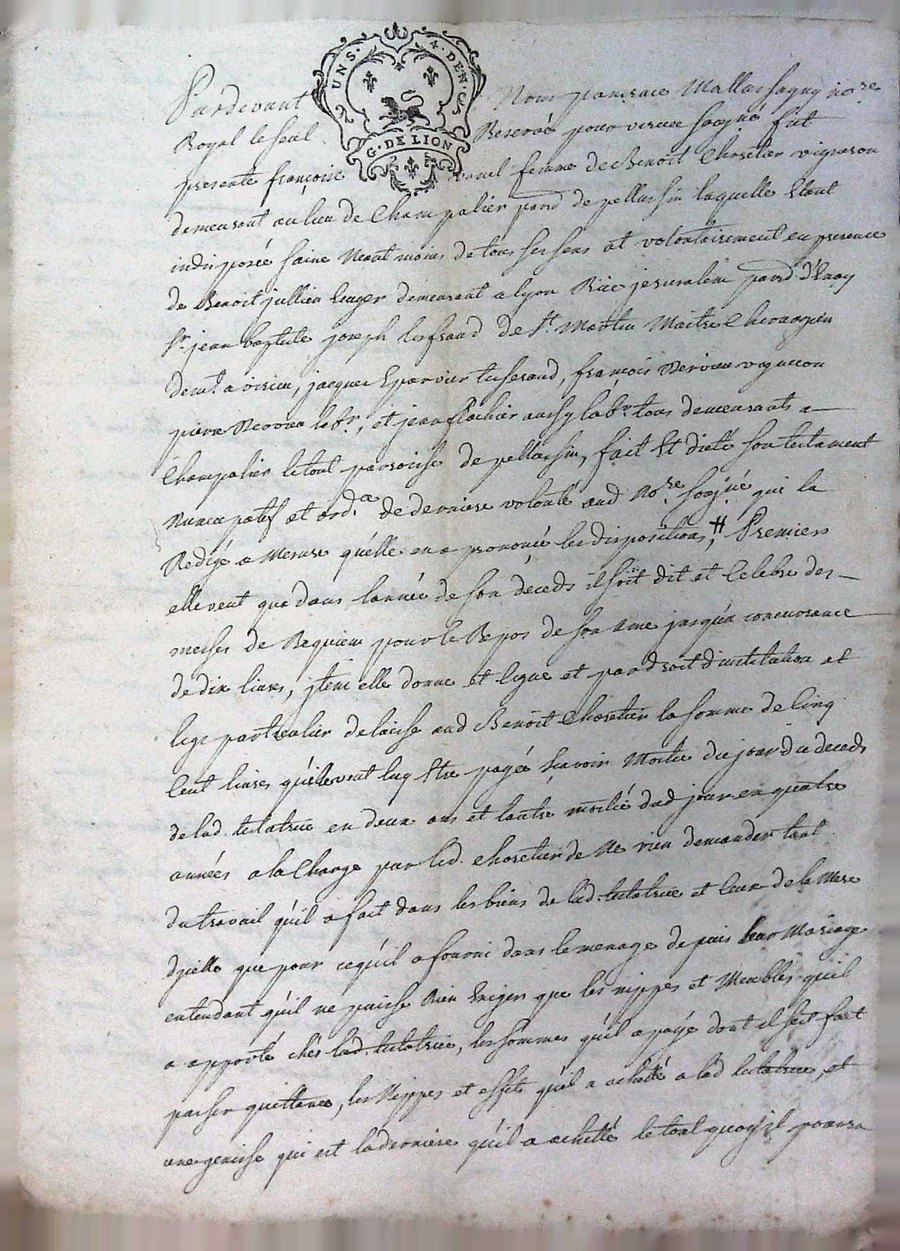 UNS. 4. DEN. 
G. DE LION
Pardevant Nous pancrace Mallassagny no.re
Royal le seul Reservé pour virieu soọné fut
presente françoise femme de Benoit Choretier vigneron
demeurant au lieu de Champalier parr.e de pellussin laquelle Etant
indisposée saine Neant moins de tous ses sens et volontairement en presence
de Benoit jullien demeurant a lyon Rüe jerusalem parr.e d'Enay
S.r jean baptiste joseph lerfraud de S.t Martin Maitre Chirurgien
dem.t a virieu, jacques Eparvier tisserand, françois Dervieu vigneron
piere lab.r, et jean flachier aussy lab.r tous demeurants a
Champalier le tout parroisse de pellussin, fait Et dicté son testament
Nuncupatif et ord.re de derniere volonté aud No.re soọné qui la
Redigé a Mesure qu'elle en a prononcé les dispositions, # Premiers
elle veut que dans lannée de son deceds il soit dit et Celebré des
messes de Requiem pour le Repos de son ame jusqu'a concurrance
de dix livres, jtem elle donne et legue et par droit d'institution et
legs particulier delaisse aud Benoit Choretier la somme de Cinq
Cent livres qu'elle veut luy Etre payée sçavoir Moitié du jour du deceds
de lad. testatrice en deux ans et lautre moitié dud jour en quatre
années a la Charge par led. Choretier de Ne rien demander tant
du travail qu'il a fait dans les biens de lad. testatrice et Ceux de la Mere
d'jcelle que pour cequ'il a fourni dans le menage depuis leur Mariage
entendant qu'il ne puisse Rien Exiger que les nippes et Meubles qu'il
a apporté chés lad. testatrice, les sommes qu'il a payé dont il s'est fait
passer quittance, les Nippes et effets qu'il a acheté a lad testatrice, et
une genisse qui est la derniere qu'il a achetté le tout quoy il pourra